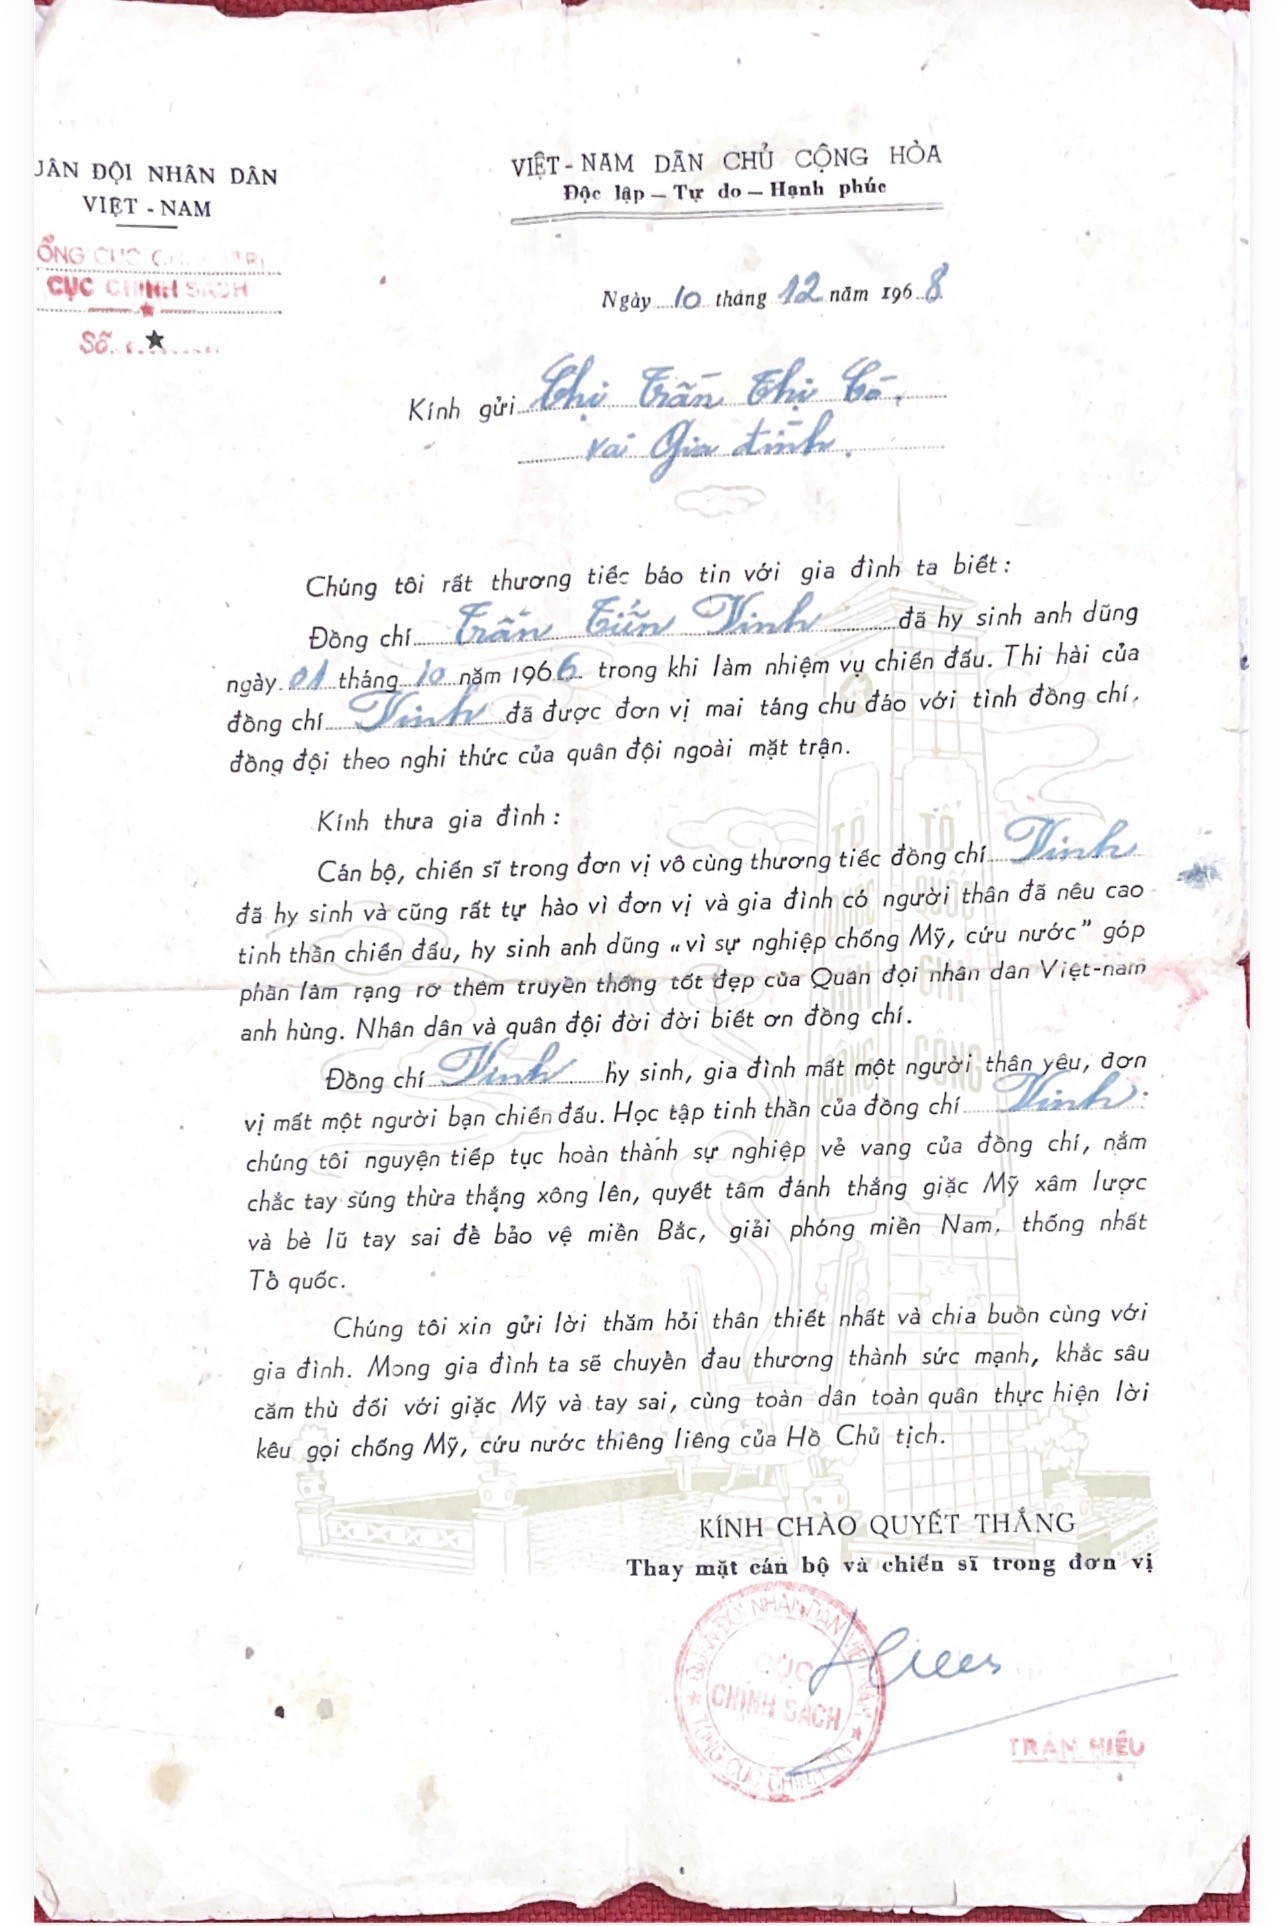 UÂN ĐỘI NHÂN DÂN
VIỆT - NAM
ỔNG CỤC
CỤC CHÍNH SÁCH
Số
VIỆT - NAM DÂN CHỦ CỘNG HÒA
Độc lập — Tự do — Hạnh phúc
Ngày 10 tháng 12 năm 1968
Kính gửi Chị Trần Thị
Gia đình.
Chúng tôi rất thương tiếc báo tin với gia đình ta biết :
Đồng chí Trần Vinh đã hy sinh anh dũng
ngày 01 tháng 10 năm 1966 trong khi làm nhiệm vụ chiến đấu. Thi hài của
đồng chí Vinh đã được đơn vị mai táng chu đáo với tình đồng chí,
đồng đội theo nghi thức của quân đội ngoài mặt trận.
Kính thưa gia đình :
Cán bộ, chiến sĩ trong đơn vị vô cùng thương tiếc đồng chí Vinh
đã hy sinh và cũng rất tự hào vì đơn vị và gia đình có người thân đã nêu cao
tinh thần chiến đấu, hy sinh anh dũng „vì sự nghiệp chống Mỹ, cứu nước” góp
phần làm rạng rỡ thêm truyền thống tốt đẹp của Quân đội nhân dân Việt-nam
anh hùng. Nhân dân và quân đội đời đời biết ơn đồng chí.
Đồng chí Vinh hy sinh, gia đình mất một người thân yêu, đơn
vị mất một người bạn chiến đấu. Học tập tinh thần của đồng chí Vinh
chúng tôi nguyện tiếp tục hoàn thành sự nghiệp vẻ vang của đồng chí, nắm
chắc tay súng thừa thắng xông lên, quyết tâm đánh thắng giặc Mỹ xâm lược
và bè lũ tay sai để bảo vệ miền Bắc, giải phóng miền Nam, thống nhất
Tổ quốc.
Chúng tôi xin gửi lời thăm hỏi thân thiết nhất và chia buồn cùng với
gia đình. Mong gia đình ta sẽ chuyển đau thương thành sức mạnh, khắc sâu
căm thù đối với giặc Mỹ và tay sai, cùng toàn dân toàn quân thực hiện lời
kêu gọi chống Mỹ, cứu nước thiêng liêng của Hồ Chủ tịch.
TỔ QUỐC GHI CÔNG
TỔ QUỐC GHI CÔNG
KÍNH CHÀO QUYẾT THẮNG
Thay mặt cán bộ và chiến sĩ trong đơn vị
QUÂN ĐỘI NHÂN DÂN VIỆT NAM
CỤC
CHÍNH SÁCH
TỔNG CỤC CHÍNH TRỊ
TRẦN HIẾU